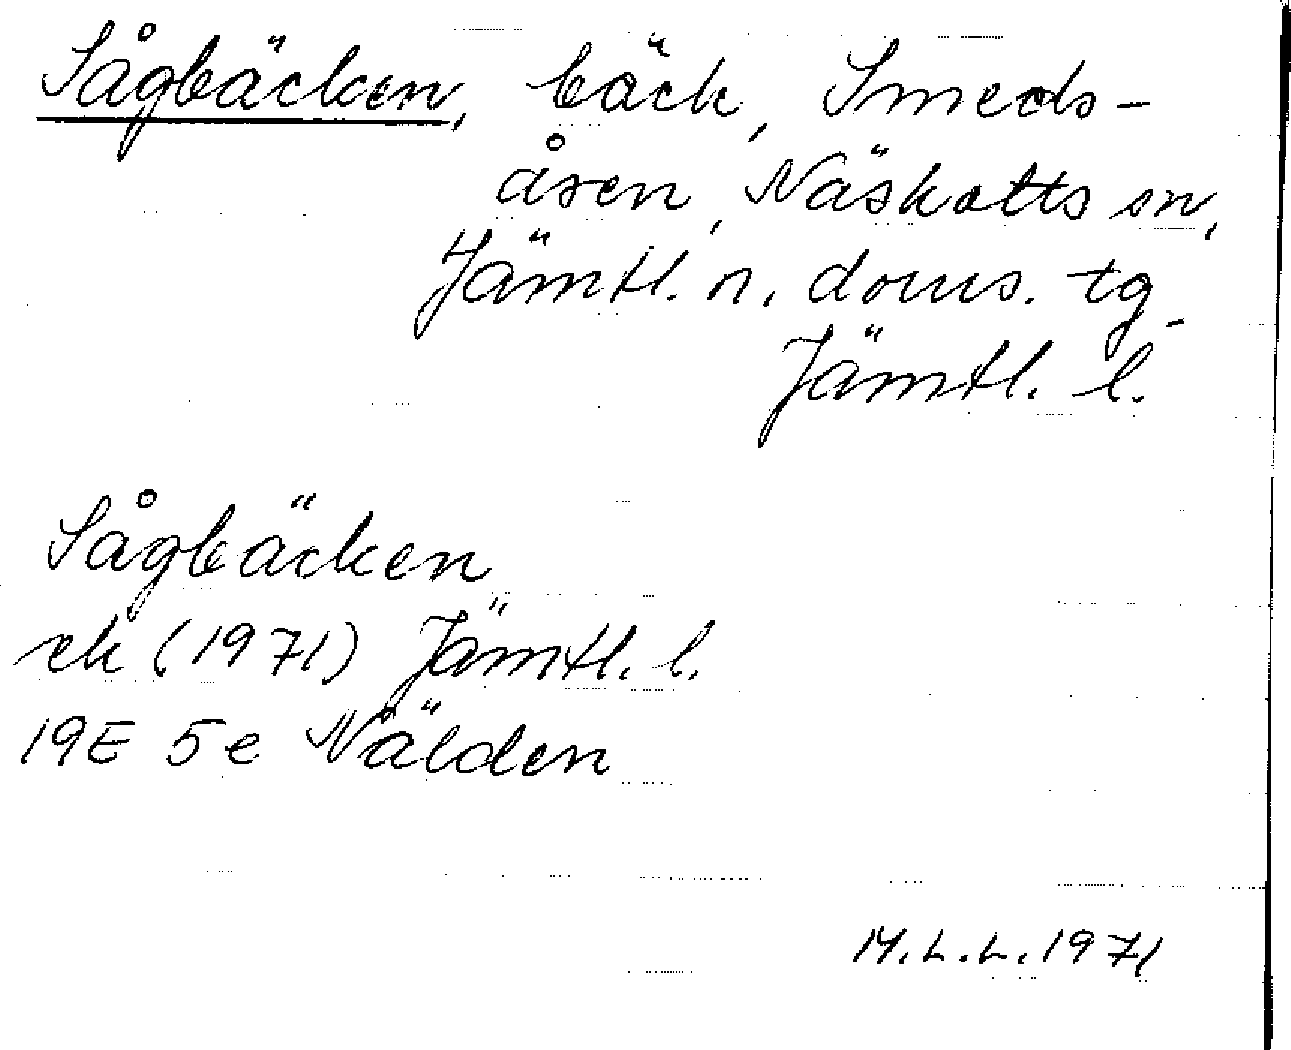 Sågbäcken, bäck, Smeds-
åsen, Näskotts sn,
Jämtl. n. doms. tg
Jämtl. l.
Sågbäcken
ek (1971) Jämtl. l.
19E 5e Nälden
M.L.L. 1971